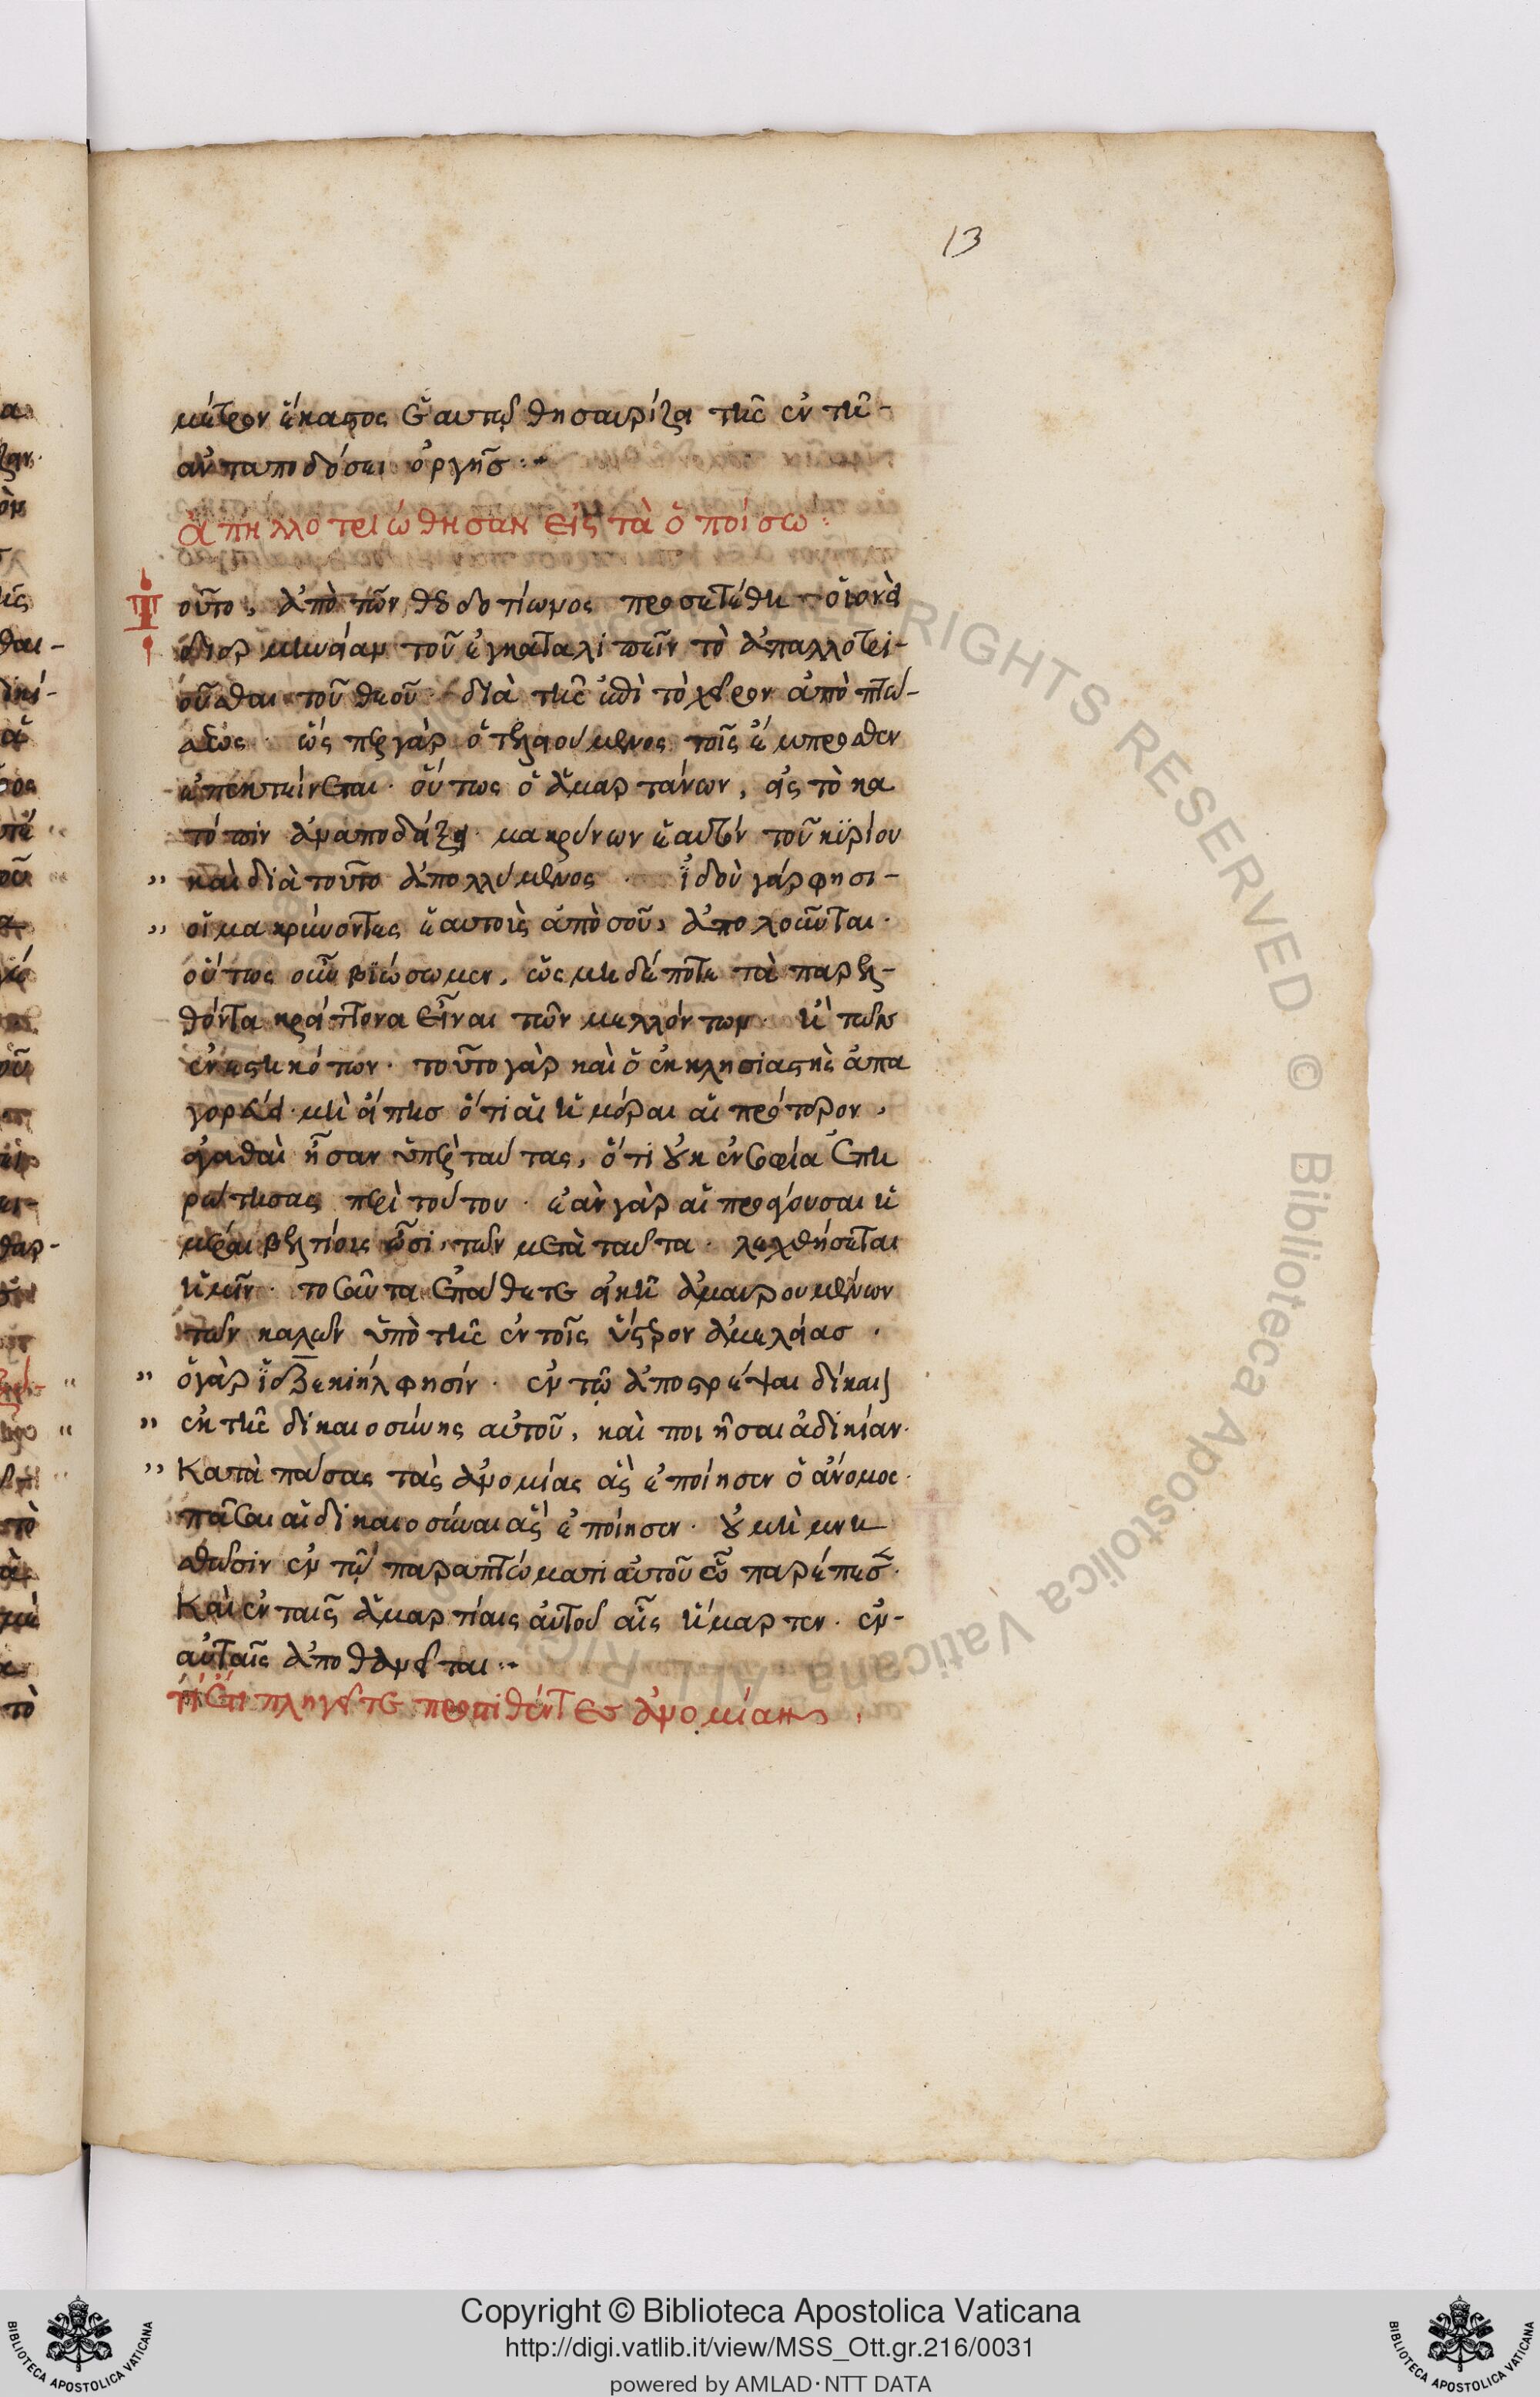 13
μέτρον ἕκαστος ἑαυτῷ θησαυρίζει τῆς ἐν τῆ-
ἀνταποδόσει ὀργῆσ :-
ἀπηλλοτριώθησαν εἰς τὰ ὀποίσω :
οῦτο, ἀπὸ τῶν θεοδοτίωνος προσετέθη οἱονεὶ
ἑρμηνείαν τοῦ ἐγκαταλιπεῖν τὸ ἀπαλλοτρι-
οῦσθαι τοῦ θεοῦ. διὰ τῆς ἐπὶ τὸ χεῖρον ἀποπτώ-
σεως. ὥσπερ γὰρ ὁ τελειούμενος τοῖς ἔμπροσθεν
ἐπεκτείνεται. οὕτως ὁ ἁμαρτάνων, εἰς τὸ κα
τόπιν ἀναποδίζει. μακρύνων ἑαυτὸν τοῦ κυρίου
" καὶ διὰ τοῦτο ἀπολλύμενος. ἰδοὺ γάρ φησι-
" οἱ μακρύνοντες ἑαυτοὺς ἀπὸ σοῦ, ἀπολοῦνται.
οὕτως οὖν βιώσωμεν, ὡς μηδέποτε τὰ παρελ-
θόντα κρείττονα εἶναι τῶν μελλόντων. ἢ τῶν
ἐνεστηκότων. τοῦτο γὰρ καὶ ὁ ἐκκλησιαστὴς ἀπα
γορεύει. μὴ εἴπησ ὅτι αἱ ἡμέραι αἱ πρότερον,
ἀγαθαὶ ἦσαν ὑπὲρ ταύτας, ὅτι οὐκ ἐν σοφία ἐπη
ρώτησας περὶ τούτου. ἐὰν γὰρ αἱ προάγουσαι ἡ
μέραι βελτίους ὦσι, τῶν μετὰ ταῦτα. λεχθήσεται
ἡμῖν. τοσαῦτα ἐπάθετε εἰκῆ ἀμαυρουμένων
τῶν καλῶν ὑπὸ τῆς ἐν τοῖς ὕστερον ἀμελείασ.
" ὁ γὰρ ἰεζεκιὴλ φησίν. ἐν τῶ ἀποστρέψαι δίκαιον
" ἐκ τῆς δικαιοσύνης αὐτοῦ, καὶ ποιῆσαι ἀδικίαν.
" Κατὰ πάσας τὰς ἀνομίας ἃς ἐποίησεν ὁ ἄνομος.
πᾶσαι αἱ δικαιοσύναι ἃς ἐποίησεν. οὐ μὴ μνη
σθῶσιν ἐν τῷ παραπτώματι αὐτοῦ ᾧ παρέπεσε.
Καὶ ἐν ταῖς ἁμαρτίαις αὐτοῦ αἷς ἥμαρτεν. ἐν-
αὐταῖς ἀποθανεῖται :-
τί ἔτι πληγῆτε προστιθέντεσ ἀνομίαν ;
RIGHTS RESERVED © Biblioteca Apostolica Vaticana ALL RIG
Copyright © Biblioteca Apostolica Vaticana
http://digi.vatlib.it/view/MSS_Ott.gr.216/0031
powered by AMLAD·NTT DATA
BIBLIOTECA APOSTOLICA VATICANA
BIBLIOTECA APOSTOLICA VATICANA